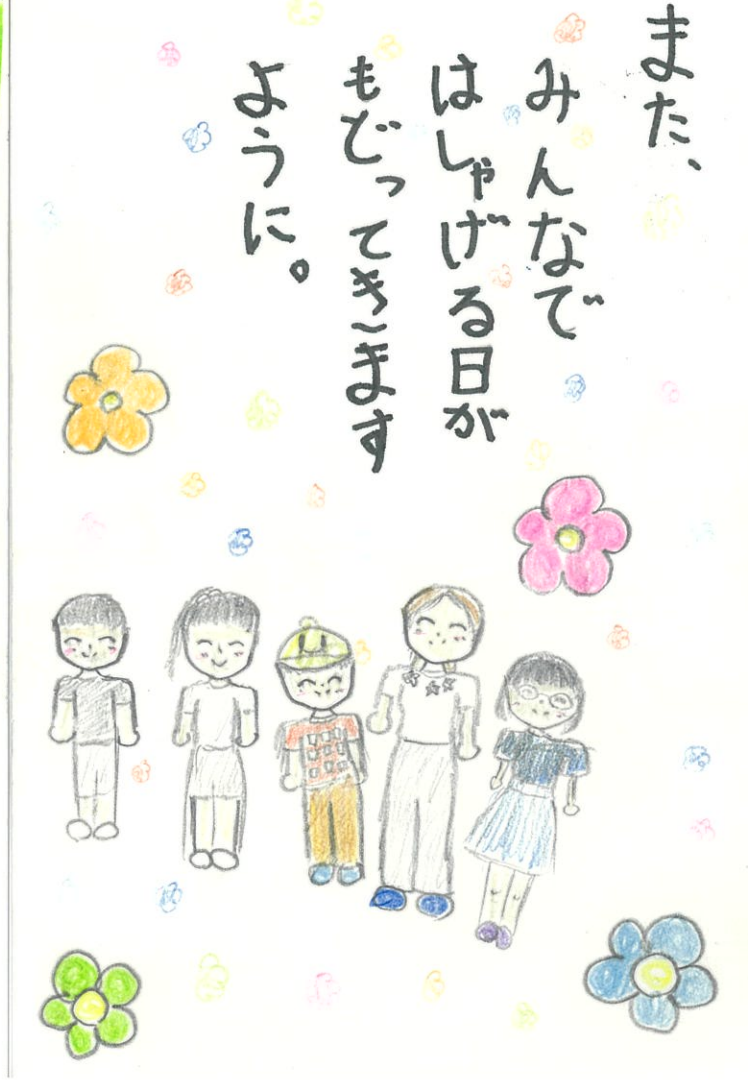 また、
みんなで
はしゃげる日が
もどってきます
ように。